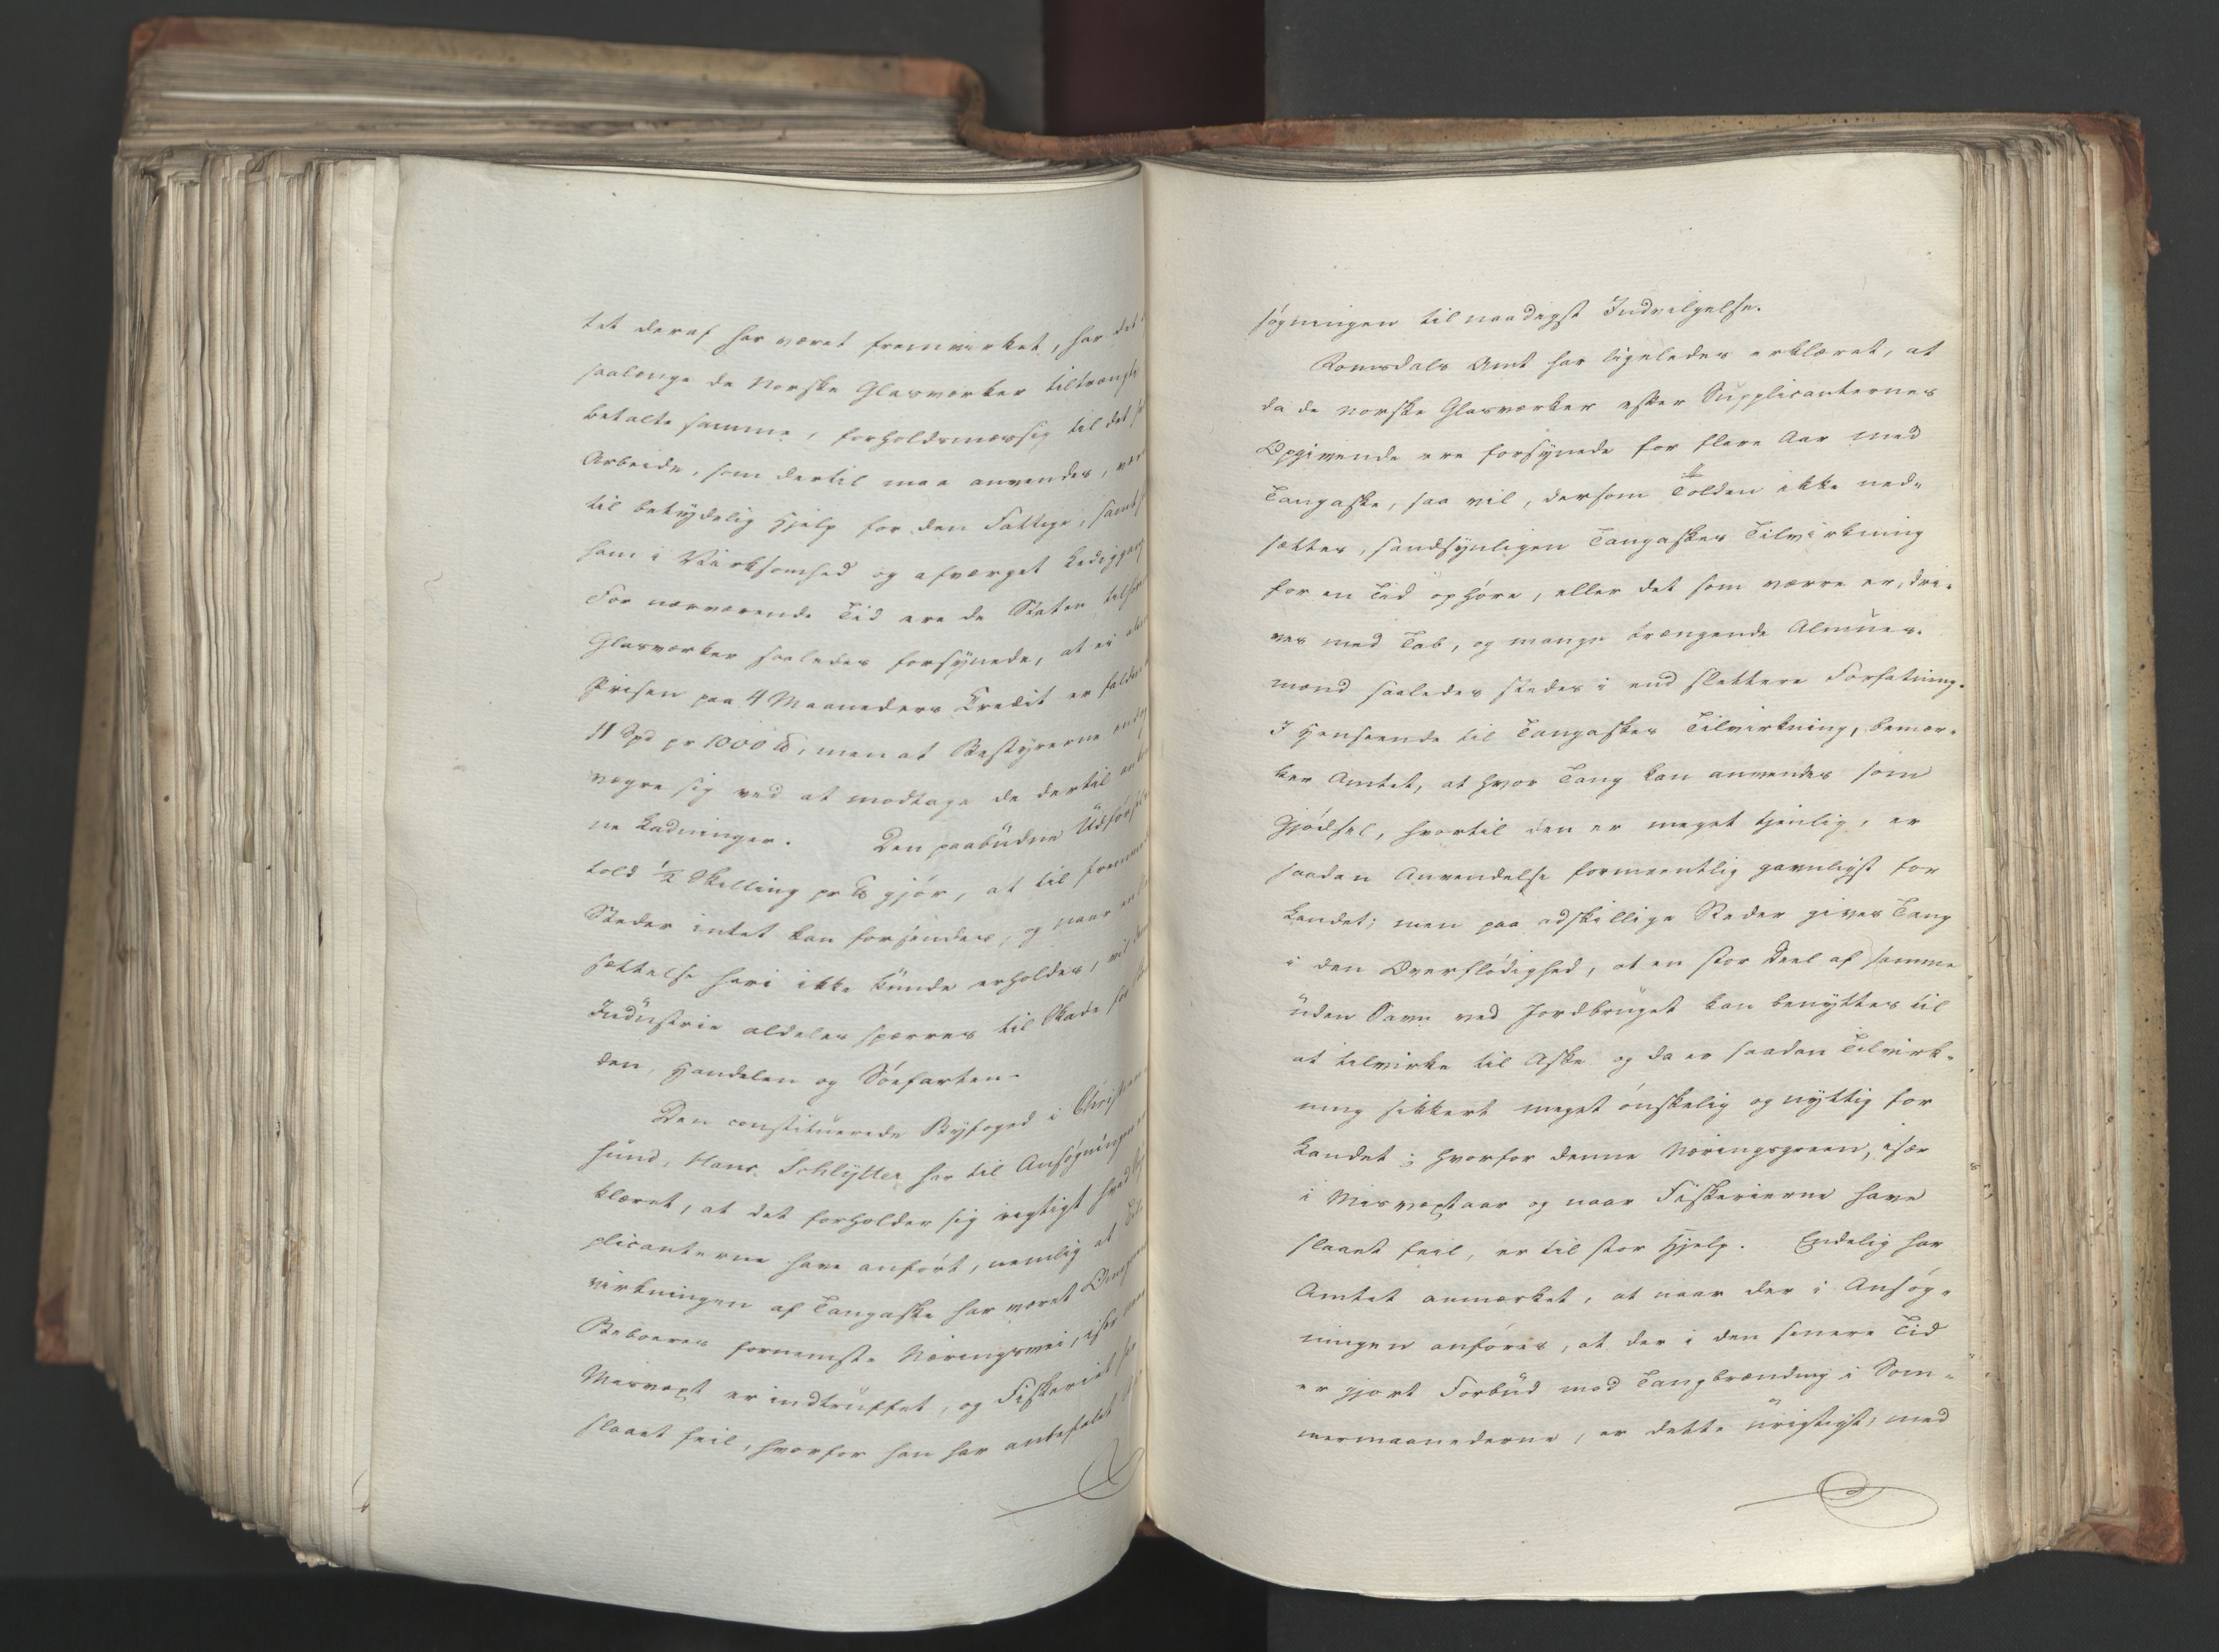 tet deraf har været fremvirket, har det
saalenge de Norske Glasværker tiltrængte
betalte samme, forholdsmæssig til det
Arbeide, som dertil maa anvendes, vær
til betydelig Hjelp for den Fattige, samt
ham i Virksomhed og afværget Lediggang
For nærværende Tid ere de Staten tilhør
Glasværker saaledes forsynede, at ei
Prisen paa 4 Maaneders Credit er falden
11 Spd pr 1000 ℔, men at Bestyrerne endog
vægre sig ved at modtage de dertil
ne Ladninger. Den paabudne Udførsels
told ½ Skilling pr ℔ gjør, at til fremmede
Steder intet kan forsendes, og naar
sættelse heri ikke kunde erholdes, vil
Industrie aldeles spærres til Skade for
den, Handelen og Søefarten.
Den constituerede Byfoged i Christian
sund, Hans Schlytter har til Ansøgningen
klæret, at det forholder sig rigtigt hvad
plicanterne have anført, nemlig at Til
virkningen af Tangaske har været Omegnens
Beboeres fornemste Næringsvei, især
Misvæxt er indtruffet, og Fiskeriet
slaaet feil, hvorfor han har anbefalet
søgningen til naadigst Indvilgelse.
Romsdals Amt har ligeledes erklæret, at
da de norske Glasværker efter Supplicanternes
Opgivende ere forsynede for flere Aar med
Tangaske, saa vil, dersom Tolden ikke ned-
sættes, sandsynligen Tangaskes Tilvirkning
for en Tid ophøre, eller det som værre er, dri-
ves med Tab, og mange trængende Almues-
mænd saaledes stedes i end slettere Forfatning.
I Henseende til Tangaskes Tilvirkning, bemær-
ker Amtet, at hvor Tang kan anvendes som
Gjødsel, hvortil den er meget tjenlig, er
saadan Anvendelse formeentlig gavnligst for
Landet; men paa adskillige Steder gives Tang
i den Overflødighed, at en stor Deel af samme
uden Savn ved Jordbruget kan benyttes til
at tilvirke til Aske og da er saadan Tilvirk-
ning sikkert meget ønskelig og nyttig for
Landet; hvorfor denne Næringsgreen, især
i Misvæxtaar og naar Fiskerierne have
slaaet feil, er til stor Hjelp. Endelig har
Amtet anmærket, at naar der i Ansøg-
ningen anføres, at der i den senere Tid
er gjort Forbud mod Tangbrænding i Som-
mermaanederne, er dette urigtigt, med